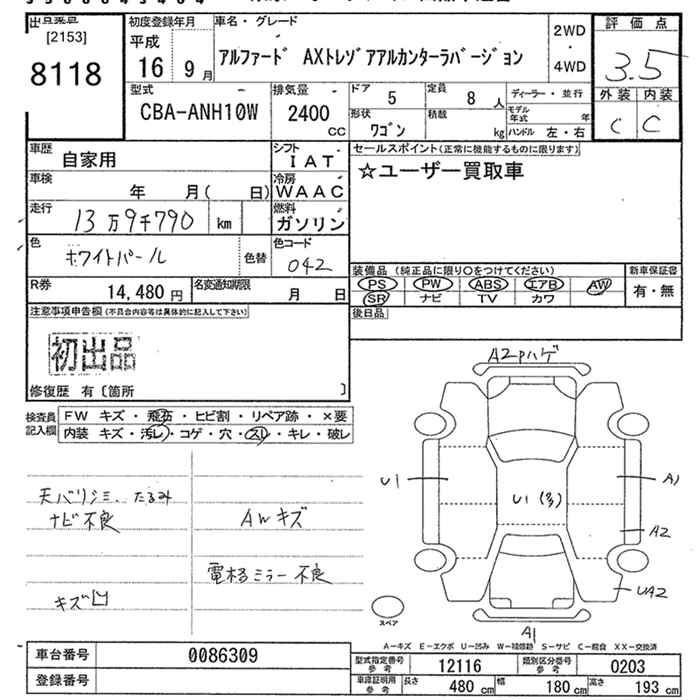 [2153]
8118
初度登録年月
平成
16 9月
車名・グレード
アルファード AXトレゾアアルカンターラバージョン
2WD
・
4WD
評価点
3.5
外装 内装
C C
型式
CBA-ANH10W
排気量
2400
CC
ドア
5
定員
8 人
ディーラー・並行
形状
ワゴン
積載
kg
モデル年式 年
ハンドル 左・右
車歴
自家用
シフト
IAT
セールスポイント(正常に機能するものに限ります)
☆ユーザー買取車
車検
年 月( 日)
冷房
WAAC
走行
13万9千790 km
燃料
ガソリン
色
ホワイトパール
色替
色コード
042
装備品 (純正品に限り○をつけてください)
新車保証書
PS PW ABS エアB AW
有・無
SR ナビ TV カワ
R券
14,480 円
名変通知期限
月 日
後日品
注意事項申告欄(不具合内容等は具体的に記入して下さい)
初出品
修復歴 有〔箇所 〕
検査員記入欄
FW キズ・飛石・ヒビ割・リペア跡・×要
内装 キズ・汚レ・コゲ・穴・スレ・キレ・破レ
天バリシミ、たるみ
ナビ不良
AWキズ
電格ミラー不良
キズ凹
A2Pハゲ
U1
U1(多)
A1
A2
UA2
A1
スペア
A-キズ E-エクボ U-凹み W-補修跡 S-サビ C-腐食 XX-交換済
車台番号
0086309
登録番号
型式指定番号
参考
12116
類別区分番号
参考
0203
車庫証明用
参考
長さ 480 cm
幅 180 cm
高さ 193 cm